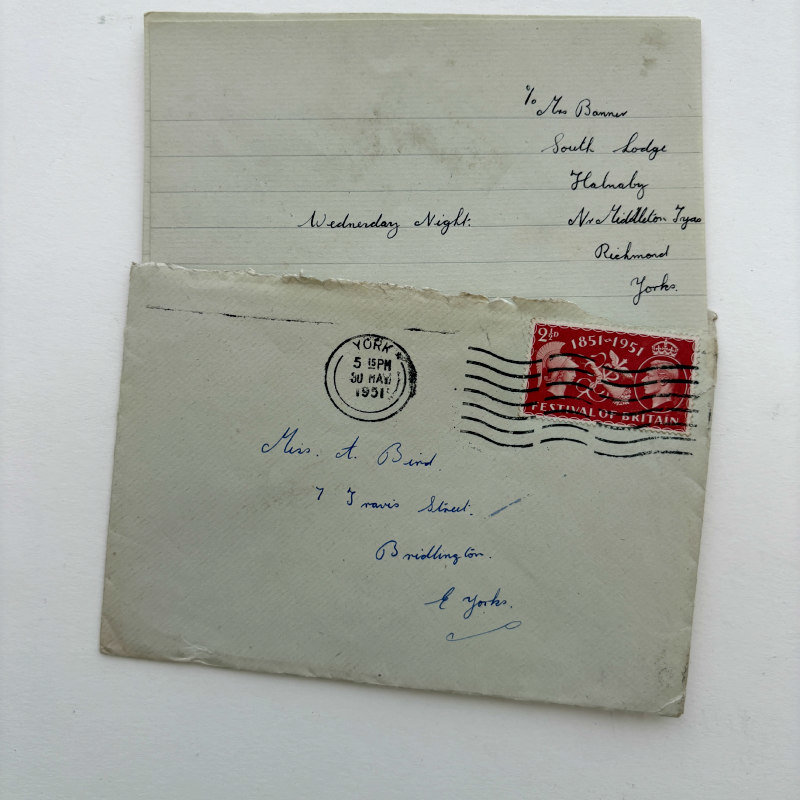 c/o Mrs Banner
South Lodge
Halnaby
Wednesday Night. Nr Middleton Tyas
Richmond
Yorks.
YORK
5 15 PM
30 MAY
1951
2½D 1851–1951
FESTIVAL OF BRITAIN
Miss. A. Bird.
7 Travis Street.
Bridlington.
E Yorks.